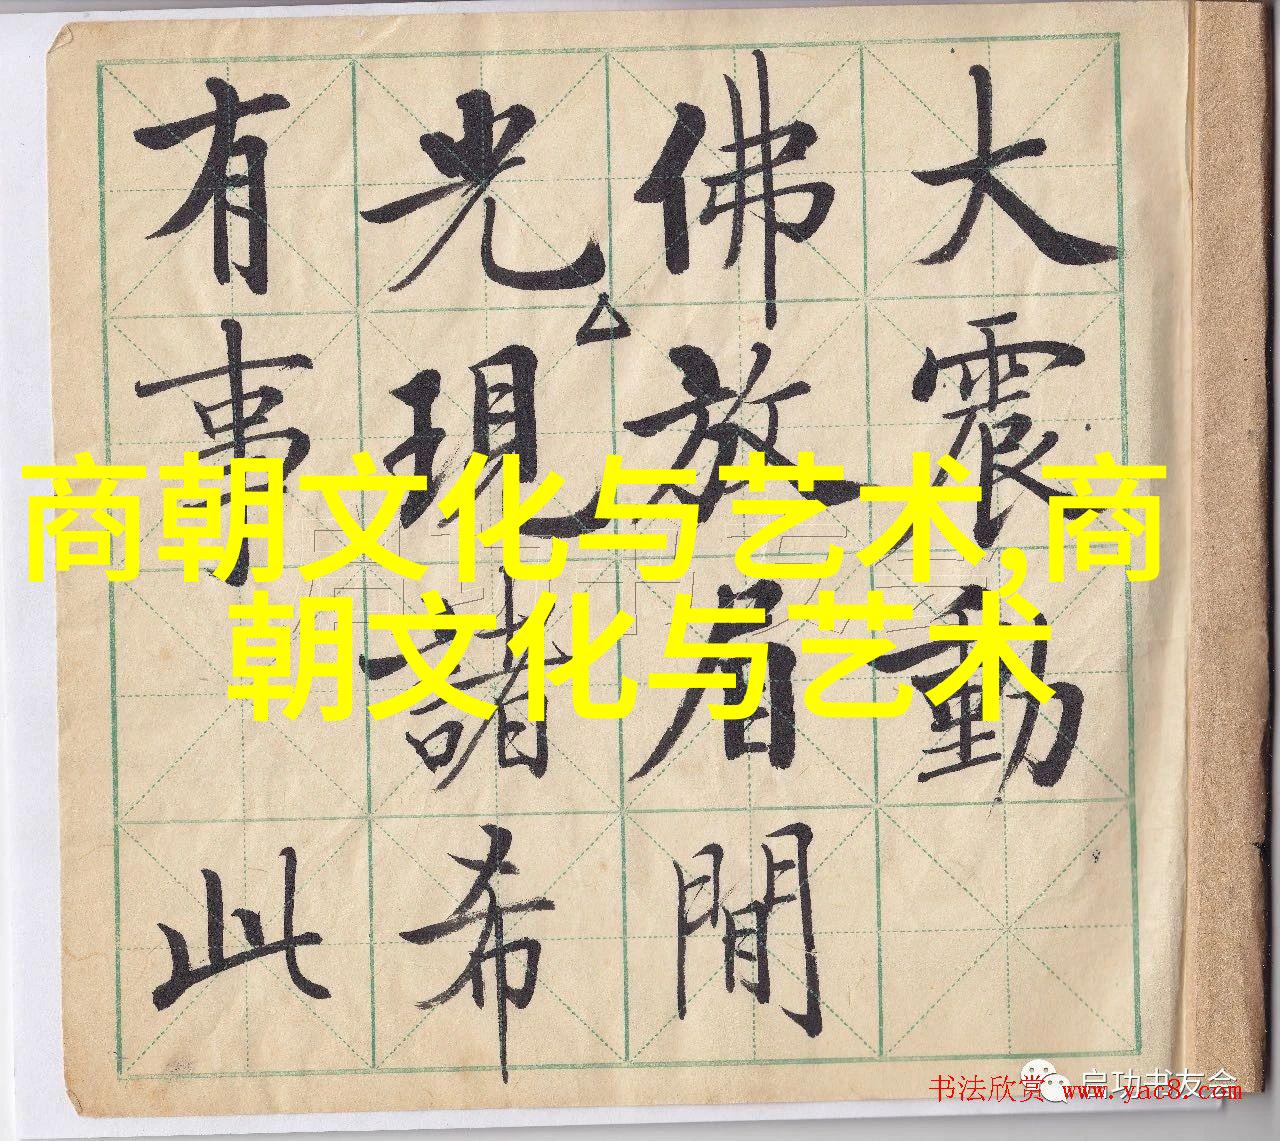 大震動
佛放眉間
光現諸希
有事
此
商朝文化与艺术,商
朝文化与艺术
启功书友会
书法欣赏 www.yac8.com